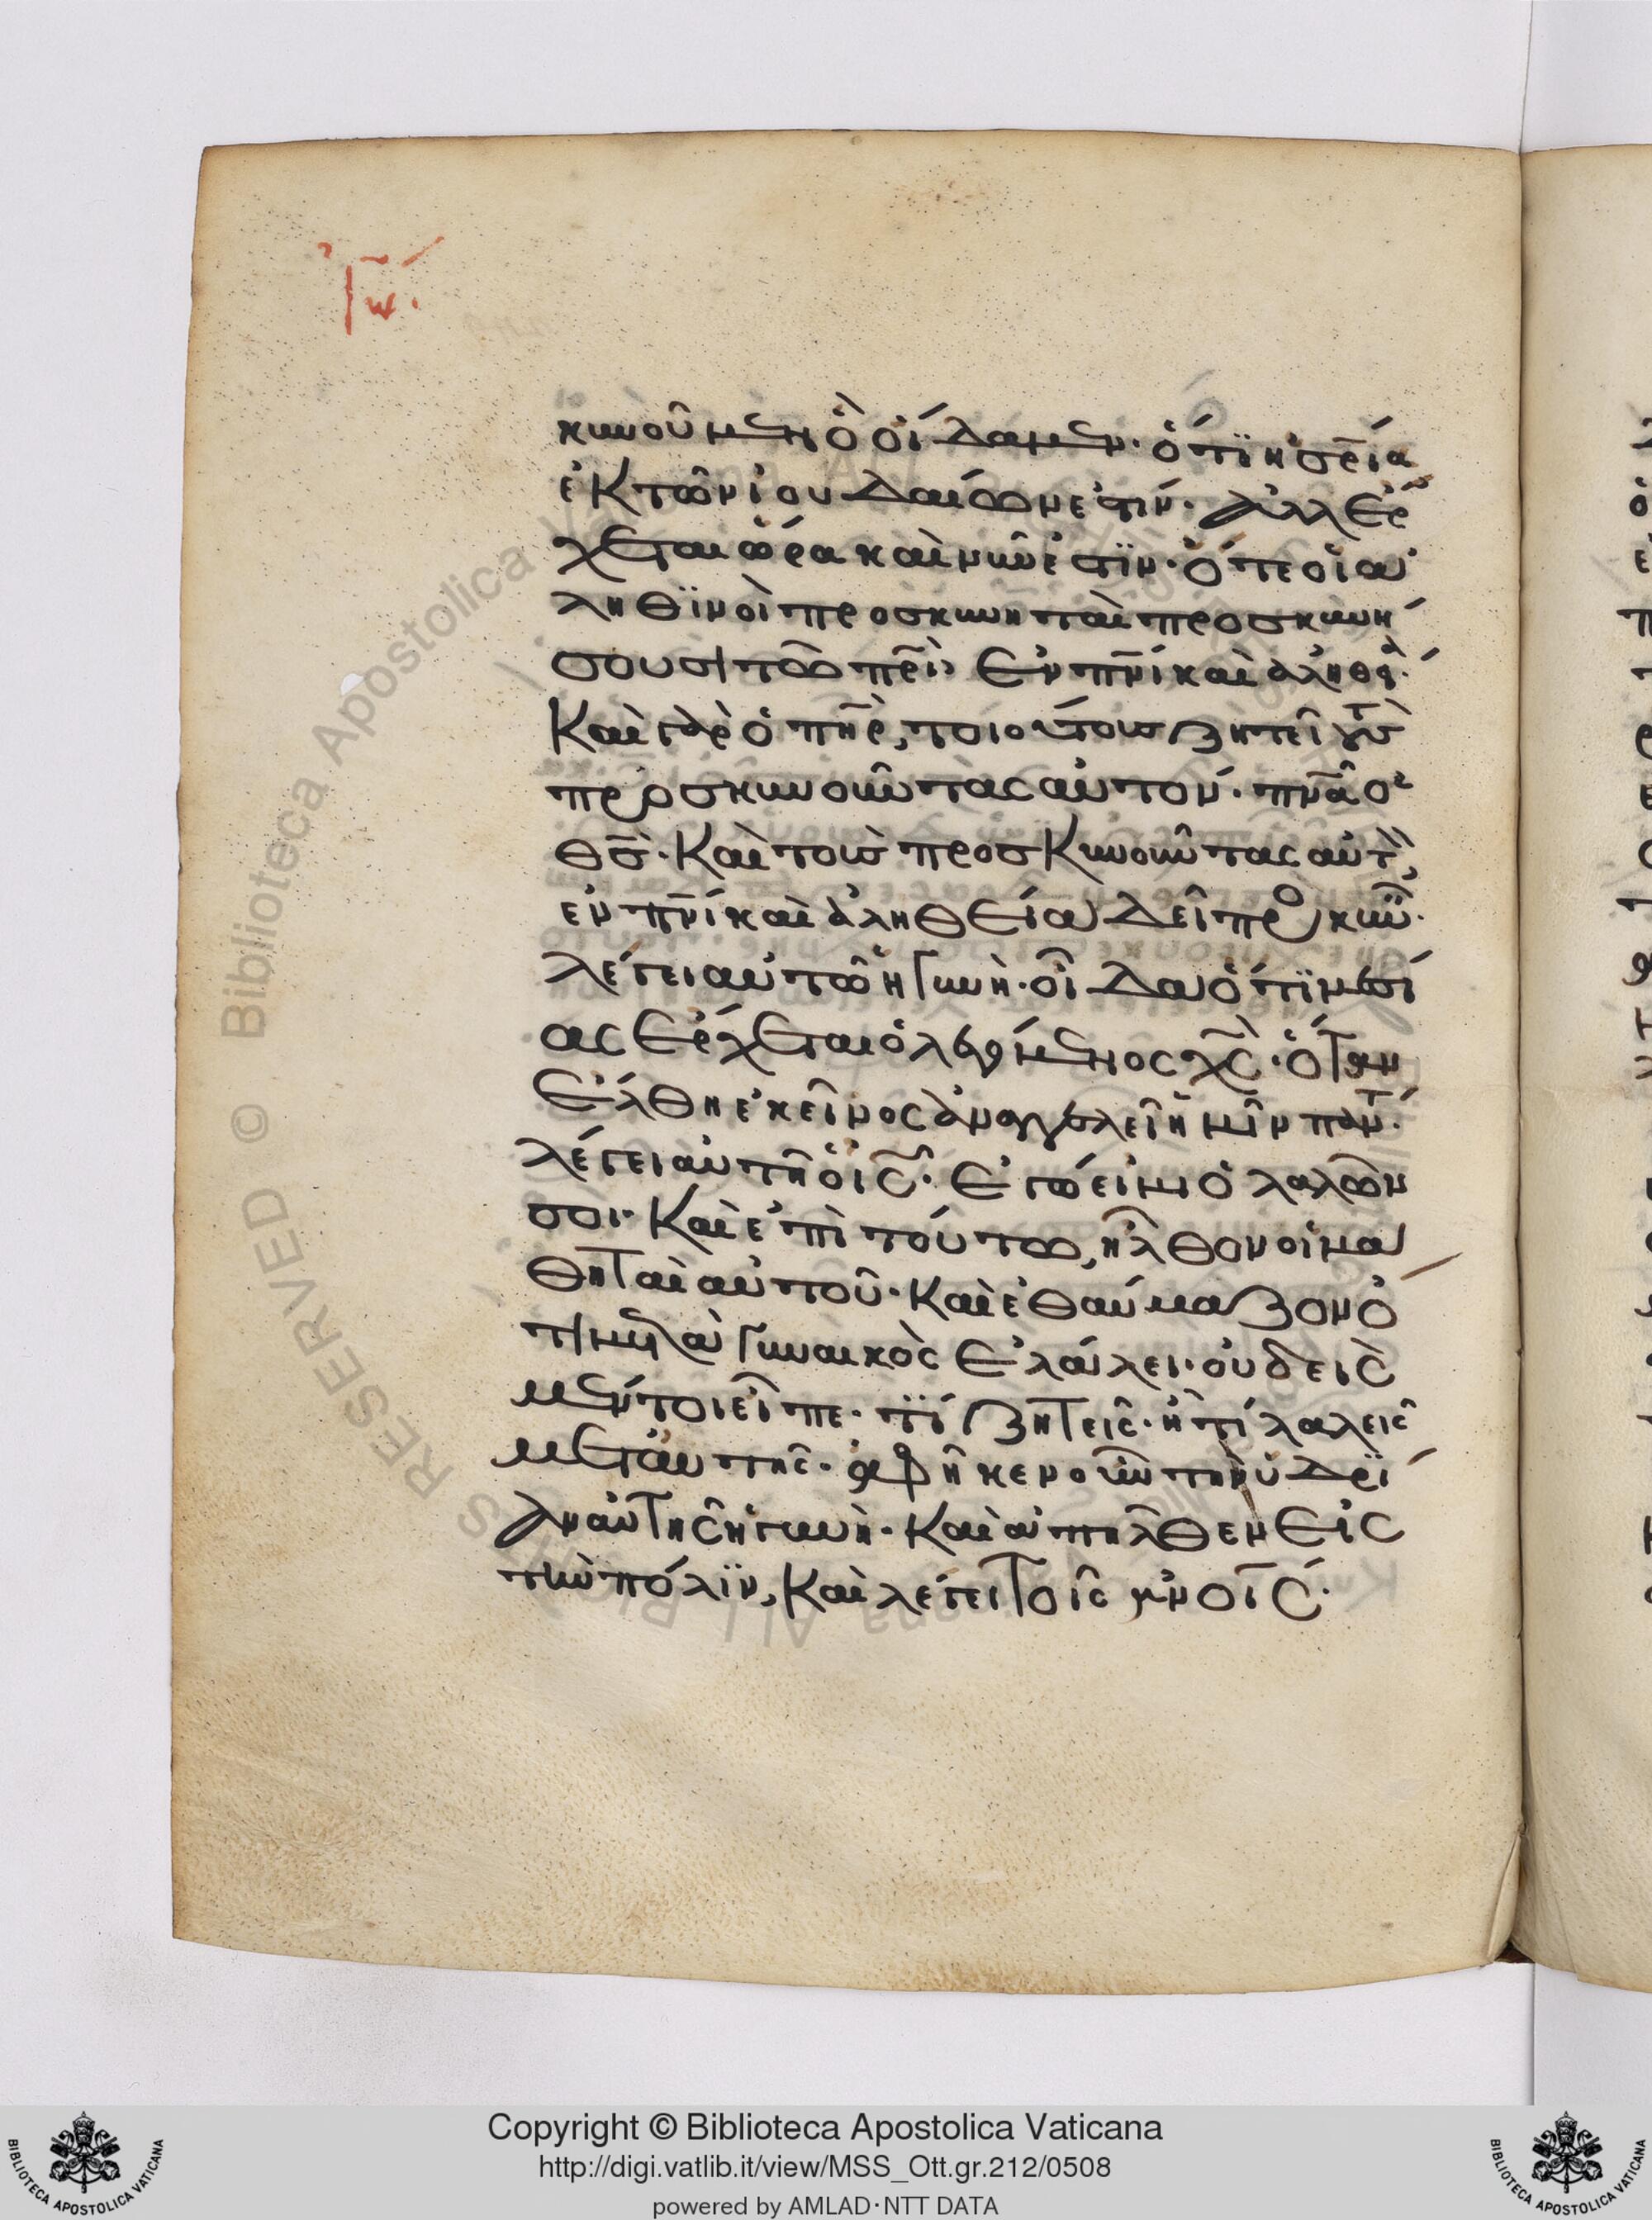 Ἰω̄.
κυνοῦμεν ὃ οἴδαμεν· ὅτϊ ἡ σ̅ρ̅ία
ἐκ τῶν ἰουδαίων ἐστίν· ἀλλ ἔρ
χεται ὥρα καὶ νῦν ἐστϊν· ὅτε οἱ ἀ
ληθϊνοὶ προσκυνηταὶ προσκυνή
σουσι τῶ π̅ρ̅ι̅ ἐν π̅ν̅ι̅ καὶ ἀληθεία·
καὶ γὰρ ὁ π̅η̅ρ̅, τοιούτους ζητεῖ τοὺς
προσκυνοῦντας αὐτόν· π̅ν̅α̅ ὁ
θ̅ς̅· καὶ τοὺς προσκυνοῦντας αὐτὸν,
ἐν π̅ν̅ι̅ καὶ ἀληθεία δεῖ προσκυνεῖν·
λέγει αὐτῶ ἡ γυνή· οἶδα ὅτϊ μεσί
ας ἔρχεται ὁ λεγόμενος χ̅ς̅· ὅταν
ἔλθη ἐκεῖνος ἀναγγελεῖ ἡμῖν πάντα·
λέγει αὐτῆ ὁ ι̅ς̅· ἐγώ εἰμι ὁ λαλῶν
σοι· καὶ ἐπὶ τούτω, ἦλθον οἱ μα
θηταὶ αὐτοῦ· καὶ ἐθαύμαζον ὅ
τι μετὰ γυναικὸς ἐλάλει· οὐδεὶς
μέντοι εἶπε· τϊ ζητεῖς· ἢ τί λαλεῖς
μετ αὐτῆς· ἀφῆκεν οὖν τὴν ὑδρϊ
αν αὐτῆς ἡ γυνή· καὶ ἀπῆλθεν εἰς
τὴν πόλϊν, καὶ λέγει τοῖς α̅ν̅ο̅ι̅ς̅·
Copyright © Biblioteca Apostolica Vaticana
http://digi.vatlib.it/view/MSS_Ott.gr.212/0508
powered by AMLAD·NTT DATA
BIBLIOTECA APOSTOLICA VATICANA
BIBLIOTECA APOSTOLICA VATICANA